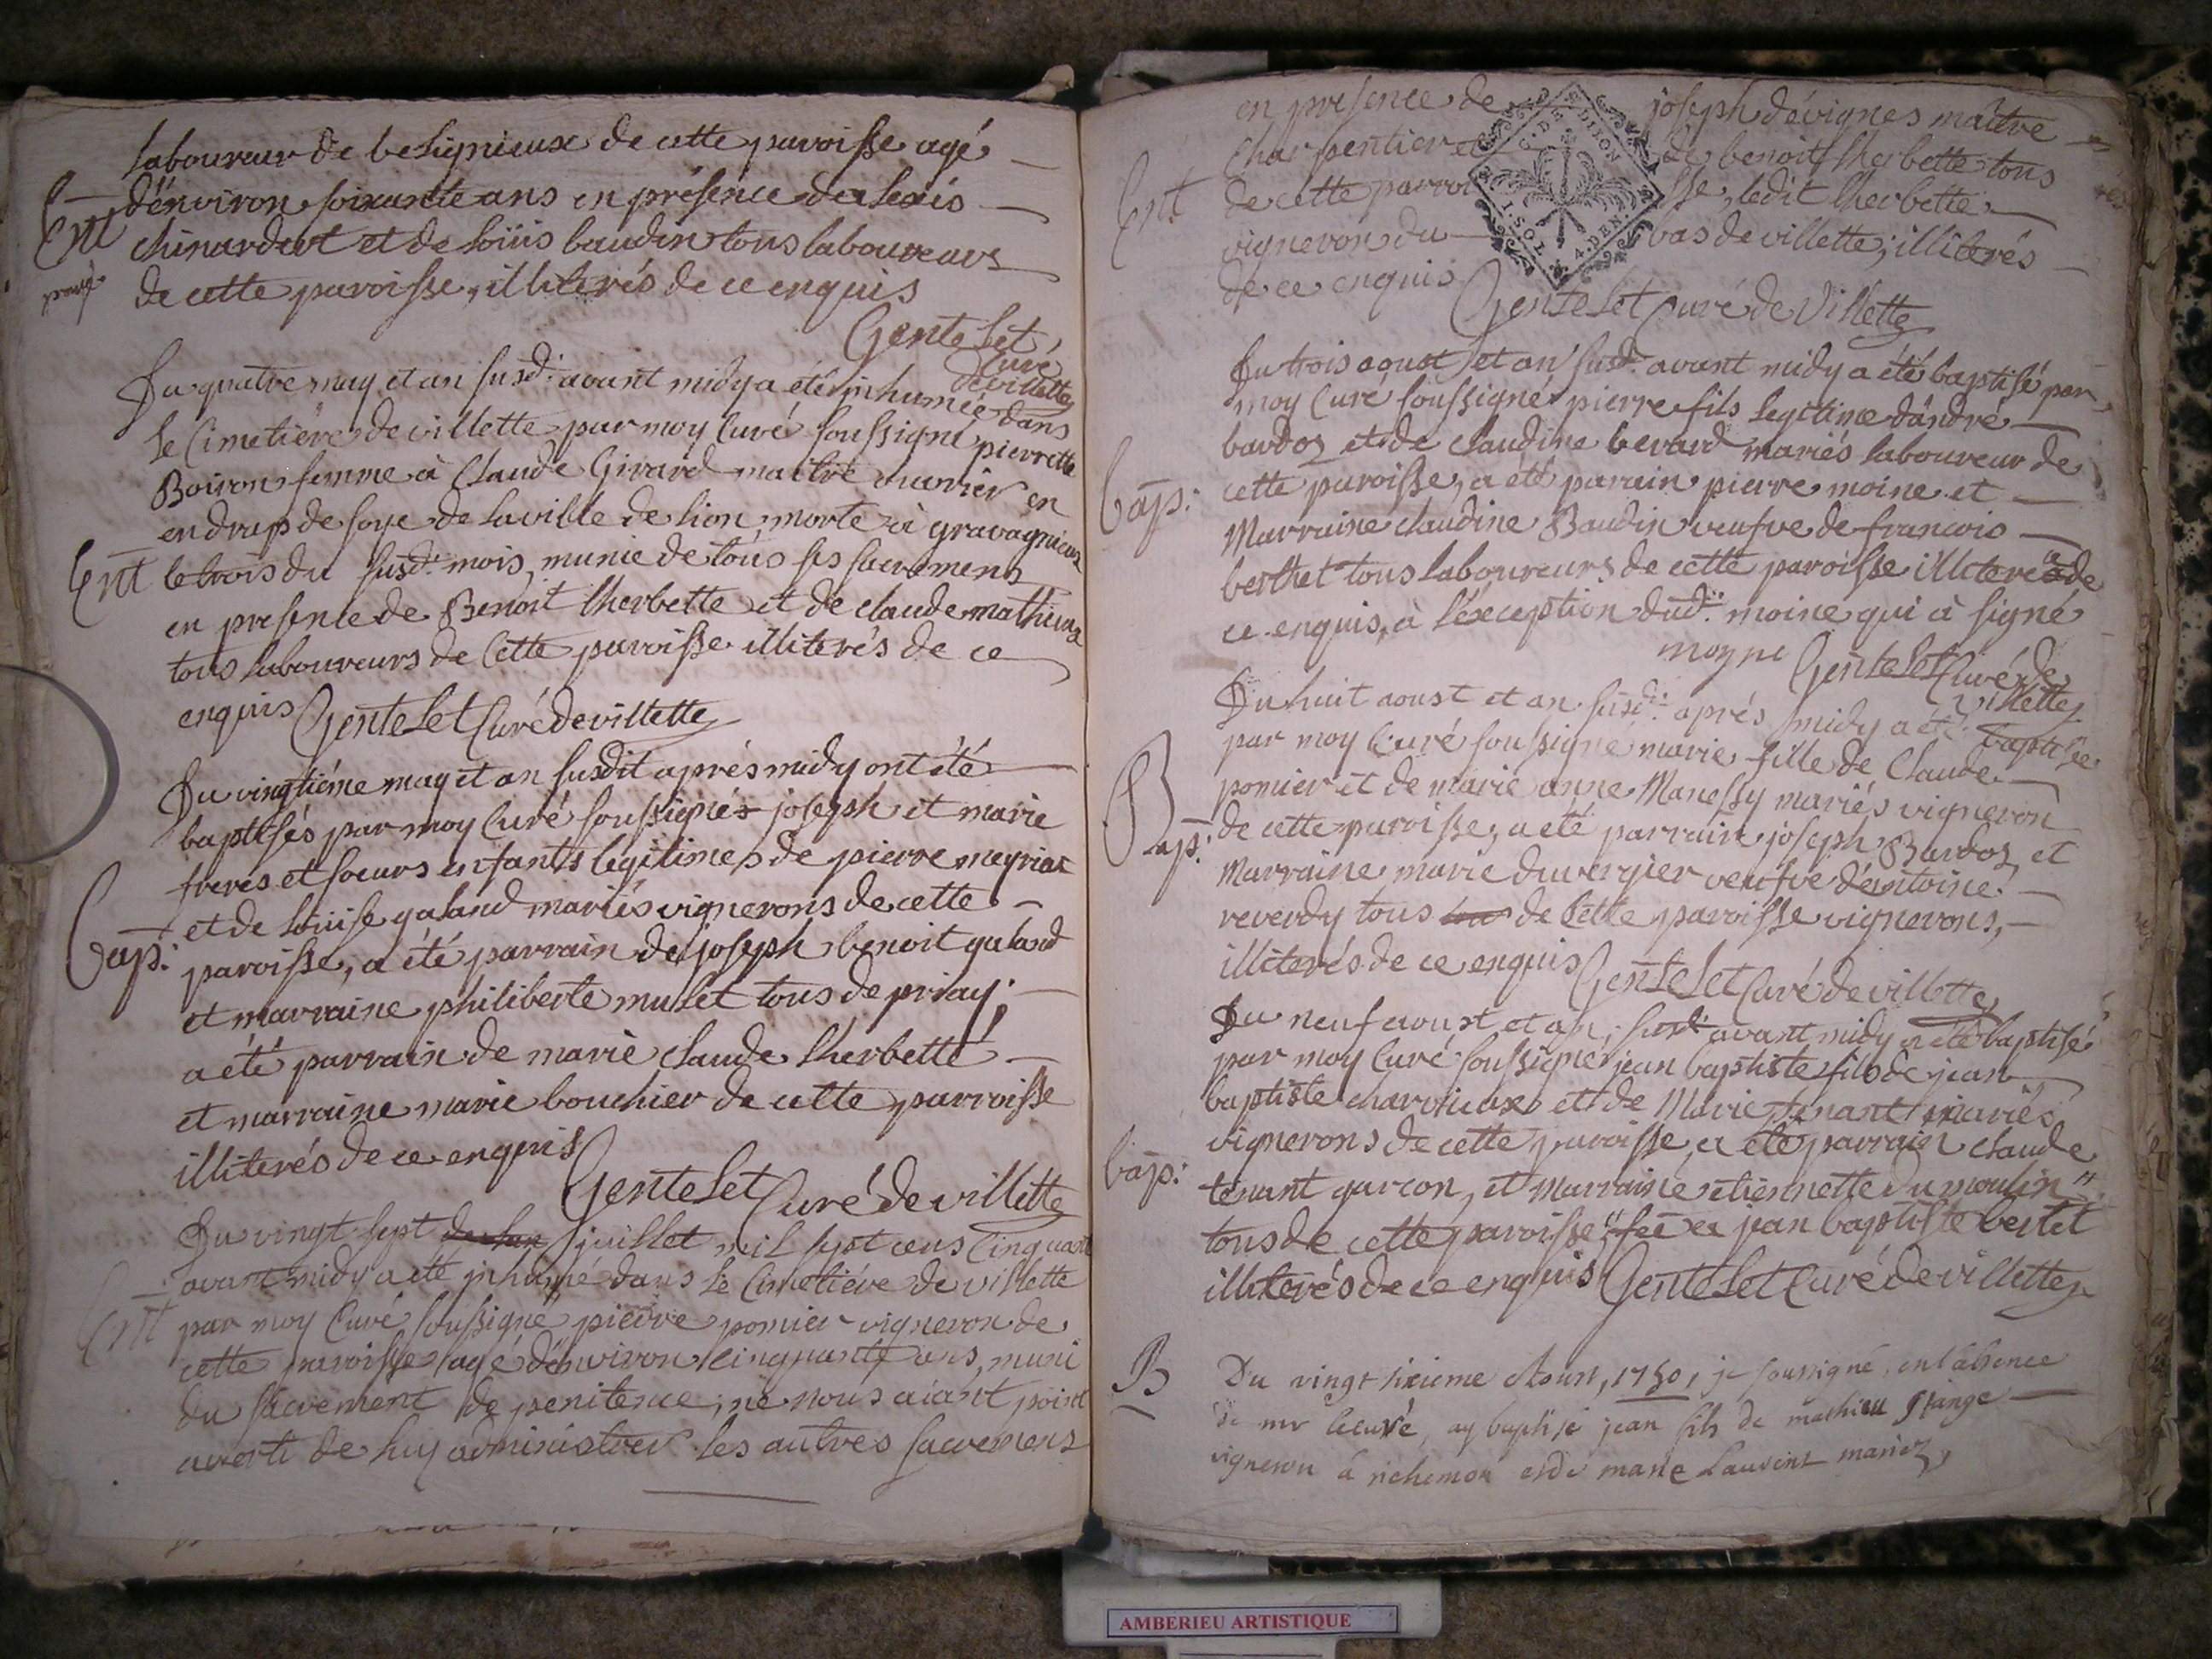 laboureur de belignieux de cette paroisse agé
Ent d'environ soixante ans en présence d'alexis
chinardet et de loüis baudin tous laboureurs
de cette paroisse, illiterés de ce enquis
GenteLet
Curé
de villette
Du quatre may et an susd: avant midy a été inhumée dans
le Cimetière de villette par moy Curé soussigné pierrette
Boiron femme à Claude Girard maitre ouvrier en
en drap de soye de la ville de lion morte à gravagnieux
Ent le trois du susd: mois, munie de tous ses sacremens
en presence de Benoit lherbette et de claude mathieux
tous laboureurs de Cette paroisse illiterés de ce
enquis GenteLet Curé de villette
Du vingtiéme may et an susdit aprés midy ont été
baptisés par moy Curé soussignés joseph et marie
freres et soeurs enfants legitimes de pierre meyriat
et de loüise galand mariés vignerons de cette
Bap: paroisse, a été parrain de joseph benoit galand
et marraine philiberte mulet tous de priay;
a été parrain de marie claude lherbette
et marraine marie bouchier de cette parroisse
illiterés de ce enquis
GenteLet Curé de villette
Du vingt sept juillet mil sept cens Cinquante
avant midy a été inhumé dans le Cimetiére de villette
Ent par moy Curé soussigné pierre pomier vigneron de
cette paroisse agé d'environ cinquante ans, muni
du sacrement de penitence; ne nous aiant point
averti de luy administrer les autres sacremens
en présence de joseph dévignes maitre
Charpentier et de benoit lherbette tous
Ent de cette parroisse, ledit lherbette
vigneron du bas de villette; illiterés
de ce enquis
G. DE DIJON
1 SOL 4 DEN
GenteLet Curé de Villette
Du trois aoust et an susd: avant midy a été baptisé par
moy Curé soussigné pierre fils legitime d'andré
bardoz et de claudine berard mariés laboureur de
Bap: cette paroisse, a été parain pierre moine et
Marraine claudine Baudin veufve de francois
berthet tous laboureurs de cette paroisse illiterés de
ce enquis, à l'éxception dud: moine qui à signé
moyne GenteLet Curé de
Villette
Du huit aoust et an susd: aprés midy a été baptisée
par moy Curé soussigné marie fille de Claude
pomier et de marie anne Manessy mariés vigneron
Bap: de cette paroisse, a été parrain joseph Bardoz et
Marraine marie duvergier veufve d'éntoine
reverdy tous de Cette paroisse vignerons,
illiterés de ce enquis GenteLet Curé de villette
Du neuf aoust et an, susd: avant midy a été baptisé
par moy Curé soussigné jean baptiste fils de jean
baptiste charvieux et de Marie tenant mariés
vignerons de cette paroisse, a été parrain claude
Bap: tenant garcon, et Marraine étiennette Dumoulin
tous de cette paroisse, jean baptiste bertet
illiterés de ce enquis GenteLet Curé de villette
B Du vingt sixieme Aoust, 1750, je soussigné, en l'absence
de mr le curé, ay baptisé jean fils de mathieu
vigneron à richemon et de marie Laurent mariez,
AMBERIEU ARTISTIQUE